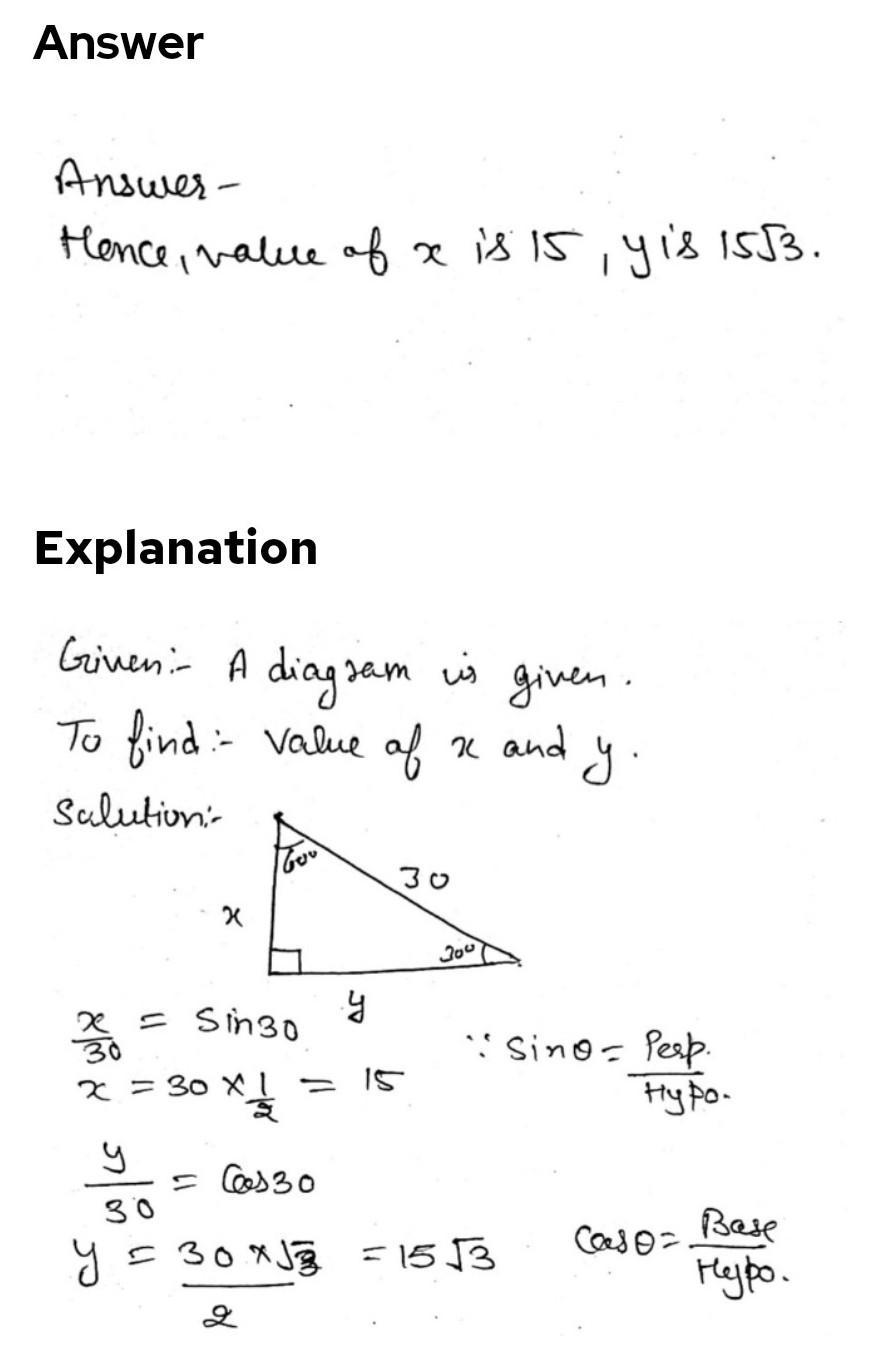 Answer
Answer -
Hence, value of x is 15, y is 15√3.
Explanation
Given:- A diagram is given.
To find:- Value of x and y.
Solution:-
60°
30
x
30°
y
x/30 = Sin30
∵ Sinθ = Perp./Hypo.
x = 30 × 1/2 = 15
y/30 = Cos30
Cosθ = Base/Hypo.
y = 30 × √3/2 = 15√3